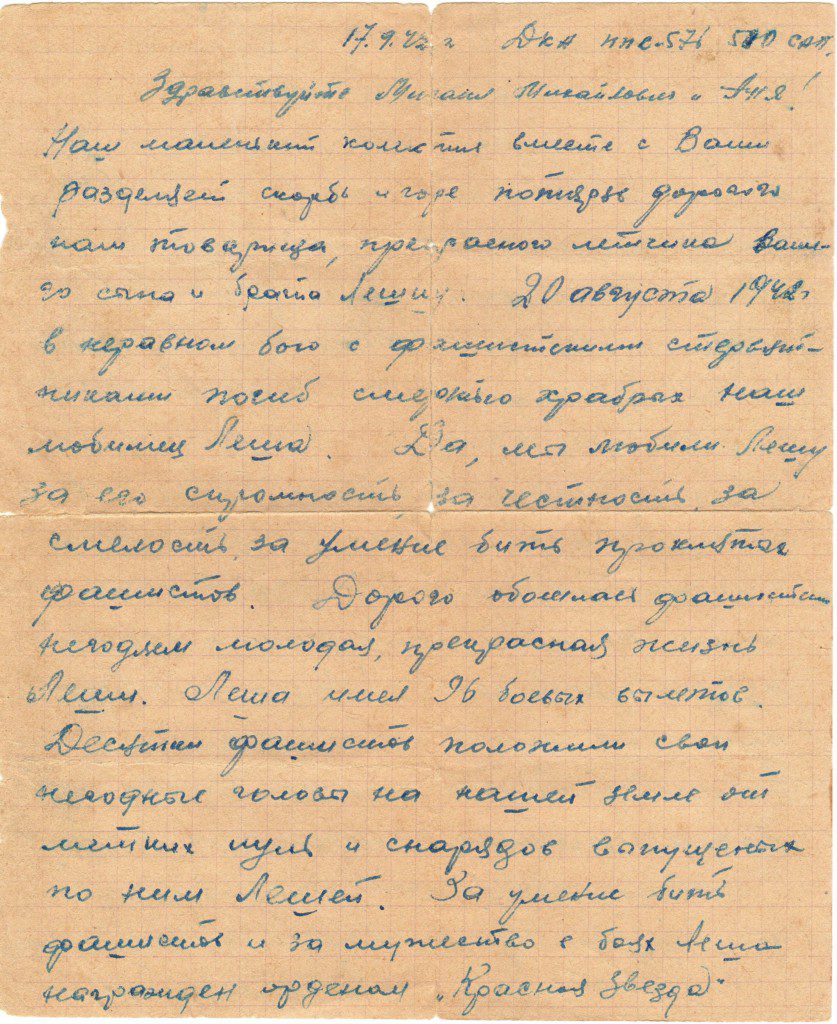 17.9.42 г ДКА ППС-576 580 САП.
Здравствуйте Михаил Михайлович и Аня!
Наш маленький колектив вместе с Вами
разделяет скорбь и горе потери дорогого
нам товарища, прекрасного летчика Ваше-
го сына и брата Лешу. 20 августа 1942г
в неравном бою с фашистскими стервят-
никами погиб смертью храбрых наш
любимец Леша. Да, мы любили Лешу
за его скромность, за честность, за
смелость, за умение бить проклятых
фашистов. Дорого обошлась фашистским
негодяям молодая, прекрасная жизнь
Леши. Леша имел 96 боевых вылетов.
Десятки фашистов положили свои
негодные головы на нашей земле от
метких пуль и снарядов выпущеных
по ним Лешей. За умение бить
фашистов и за мужество в боях Леша
награжден орденом „Красная звезда"